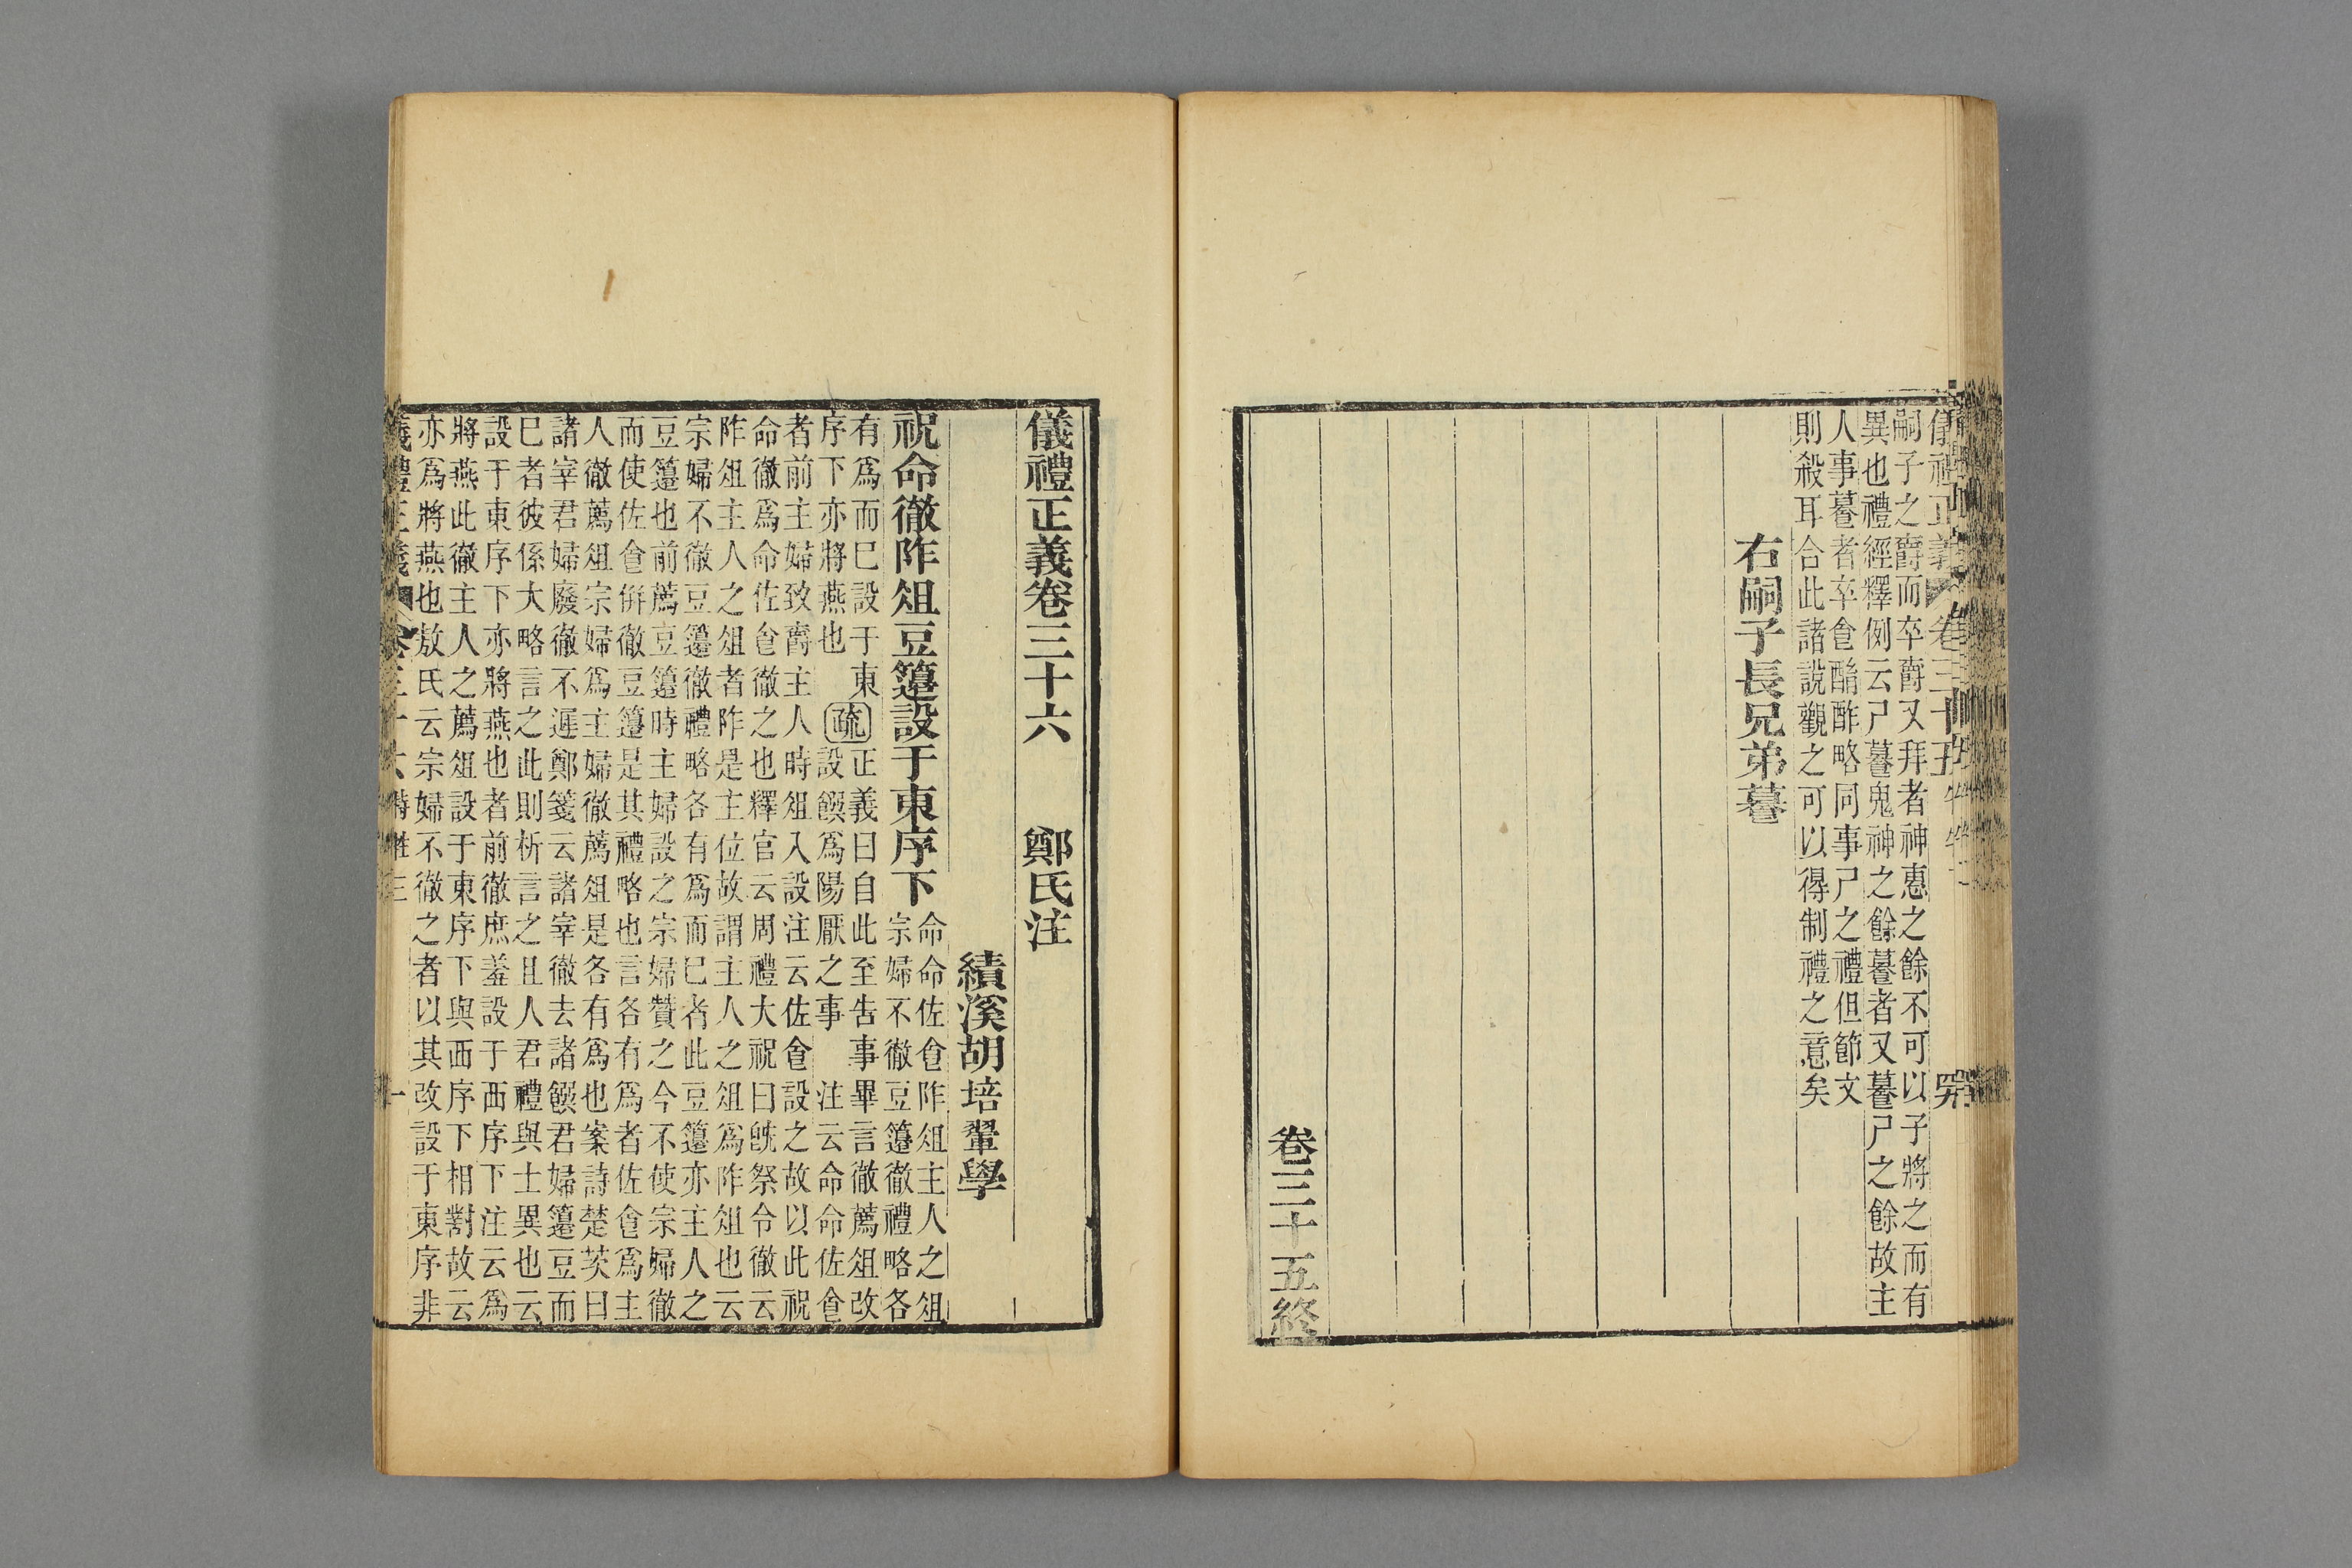 儀禮正義 卷三十五
嗣子之爵而卒爵又拜者神惠之餘不可以子將之而有
異也禮經釋例云尸䬸鬼神之餘䬸者又䬸尸之餘故主
人事䬸者卒食酳酢略同事尸之禮但節文
則殺耳合此諸說觀之可以得制禮之意矣
右嗣子長兄弟䬸
卷三十五終
儀禮正義卷三十六 鄭氏注
績溪胡培翬學
祝命徹阼俎豆籩設于東序下
命命佐食阼俎主人之俎
宗婦不徹豆籩徹禮略各
有爲而已設于東
序下亦將燕也
疏
正義曰自此至告事畢言徹薦俎改
設饌爲陽厭之事 注云命命佐食
者前主婦致爵主人時俎入設注云佐食設之故以此祝
命徹爲命佐食徹之也釋官云周禮大祝曰旣祭令徹云
阼俎主人之俎者阼是主位故謂主人之俎爲阼俎也云
宗婦不徹豆籩徹禮略各有爲而已者此豆籩亦主人之
豆籩也前薦豆籩時主婦設之宗婦贊之今不使宗婦徹
而使佐食倂徹豆籩是其禮略也言各有爲者佐食爲主
人徹薦俎宗婦爲主婦徹薦俎是各有爲也案詩楚茨曰
諸宰君婦廢徹不遲鄭箋云諸宰徹去諸饌君婦籩豆而
已者彼係大略言之此則析言之且人君禮與士異也云
設于東序下亦將燕也者前徹庶羞設于西序下注云爲
將燕此徹主人之薦俎設于東序下與西序下相對故云
亦爲將燕也敖氏云宗婦不徹之者以其改設于東序非